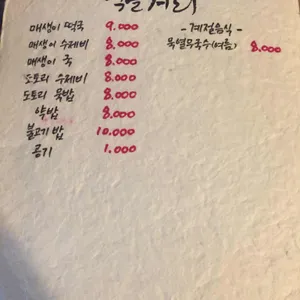 매생이 떡국 9.000
매생이 수제비 8.000
매생이 국 8.000
도토리 수제비 8.000
도토리 묵밥 8.000
약밥 8.000
불고기 밥 10.000
공기 1.000
-계절음식-
묵열무국수(여름) 8.000